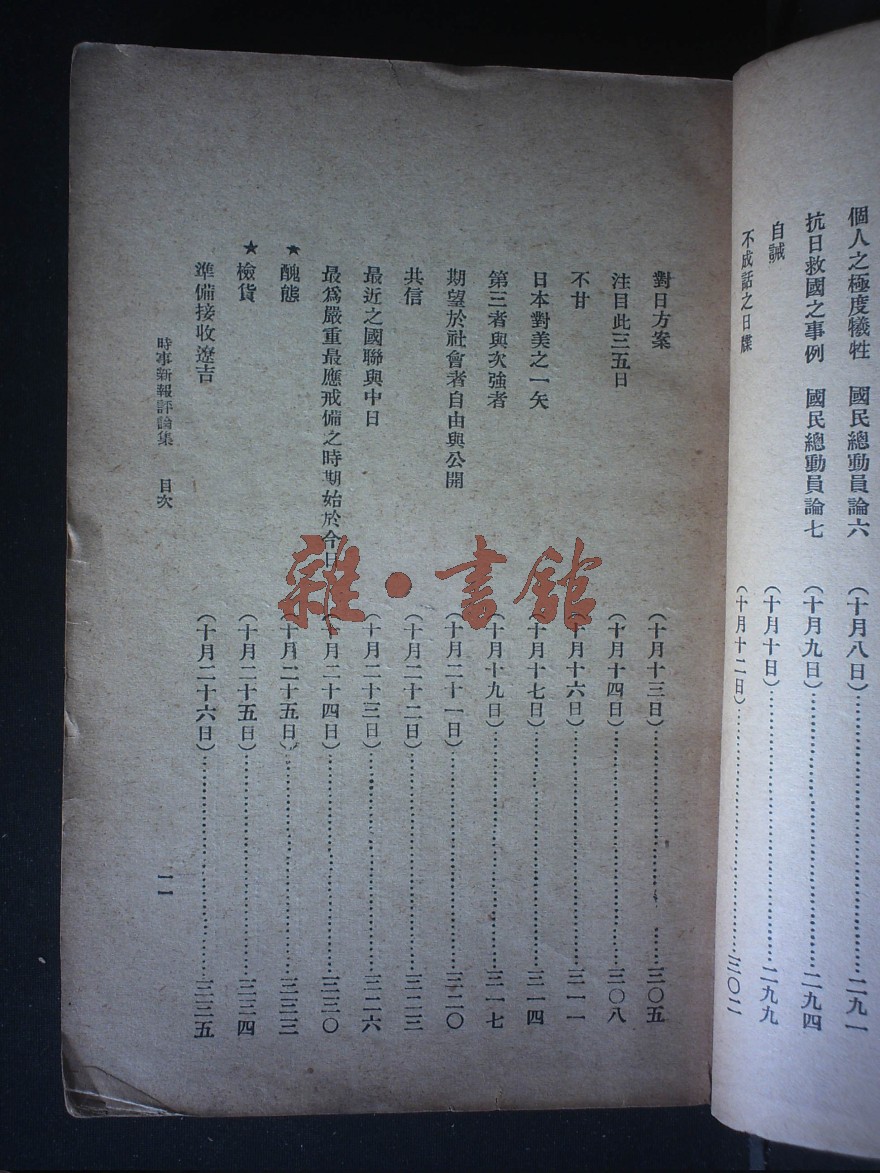 個人之極度犧牲 國民總動員論六 (十月八日)……二九一
抗日救國之事例 國民總動員論七 (十月九日)……二九四
自誡 (十月十日)……二九九
不成話之日牒 (十月十二日)……三〇二
對日方案 (十月十三日)……三〇五
注目此三五日 (十月十四日)……三〇八
不甘 (十月十六日)……三一一
日本對美之一矢 (十月十七日)……三一四
第三者與次強者 (十月十九日)……三一七
期望於社會者自由與公開 (十月二十一日)……三二〇
共信 (十月二十二日)……三二三
最近之國聯與中日 (十月二十三日)……三二六
最爲嚴重最應戒備之時期始於今日 (十月二十四日)……三三〇
★醜態 (十月二十五日)……三三三
★檢貨 (十月二十五日)……三三四
準備接收遼吉 (十月二十六日)……三三五
時事新報評論集 目次 一一
雜·書館